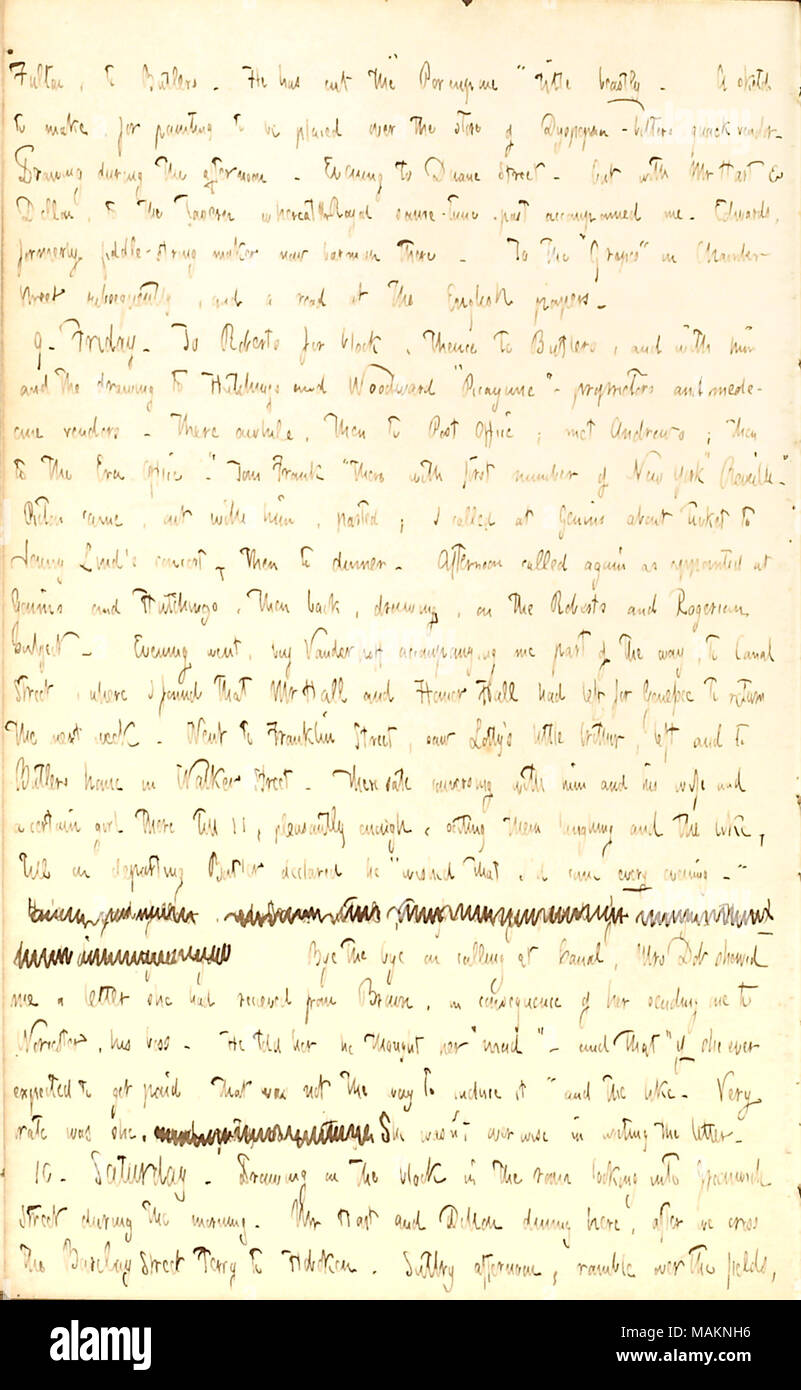 Fulton, to Butlers. He has cut the "Porcupine" title beastly. A sketch
to make, for painting to be placed over the store of Dyspepsia-bitters quack vendor.
Drawing during the afternoon. Evening to Duane Street. Out with Mr Hart &
Dillon, to the Tavern whereat Royal some-time-past accompanied me. Edwards,
formerly fiddle-string maker now barman there. To the "Grapes" in Chamber
street subsequently, and a read at the English papers.
9. Friday. To Roberts for block, thence to Butlers, and with him
and the drawing to Hutchings and Woodward "Picayune" - proprietors and medi-
cine vendors. There awhile, then to Post Office; met Andrews; then
to the Era Office. "Tom Frank" there with first number of New York "Reveille."
Picton came, out with him, parted; I called at Genins about ticket to
Jenny Lind's concert, then to dinner. Afternoon called again as appointed at
Genins and Hutchings, then back, drawing, on the Roberts and Rogerian
subject. Evening went, Vanderhoff accompanying me part of the way, to Canal
Street, where I found that Mr Hall and Homer Hall had left for to return
the next week. Went to Franklin Street, saw Lotty's little brother, left and to
Butlers home in Walker Street. There sate conversing with him and his wife and
a certain girl there till 11, pleasantly enough, setting them laughing and the like,
till on departing Butler declared he "wished that I'd come every evening."
Bye the bye on calling at Canal, Mrs Dob showed
me a letter she had received from Brown, in consequence of her sending me to
Worcester, his boss. He told her he thought her "mad" - and that "if she ever
expected to get paid that was not the way to induce it" and the like. Very
irate was she. She wasn't over wise in writing the letter.
10. Saturday. Drawing on the block in the room looking into Greenwich
Street during the morning. Mr Hart and Dillon dining here, after we cross
the Barclay Street Ferry to Hoboken. Sultry afternoon, ramble over the fields,
alamy
Image ID: MAKNH6
www.alamy.com